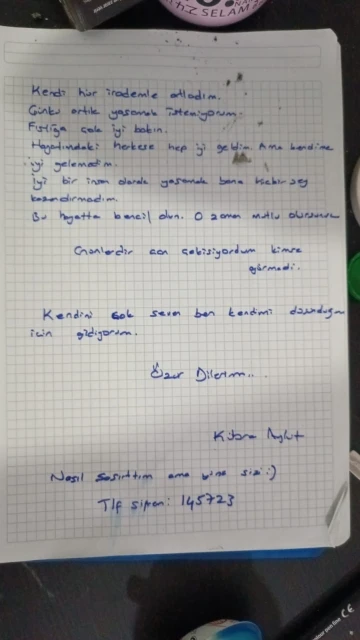 SELAM
Kendi hür irademle atladım.
Çünkü artık yaşamak istemiyorum.
Fıstığa çok iyi bakın.
Hayatımdaki herkese hep iyi geldim. Ama kendime
iyi gelemedim.
iyi bir insan olarak yaşamak bana hiçbir şey
kazandırmadı.
Bu hayatta bencil olun. O zaman mutlu olursunuz
Günlerdir can çekişiyordum kimse
görmedi.
Kendini çok seven ben kendimi düşündüğüm
için gidiyorum.
Özür Dilerim...
Kübra Aykut
Nasıl şaşırttım ama yine sizi :)
Tlf şifrem: 145723
CE